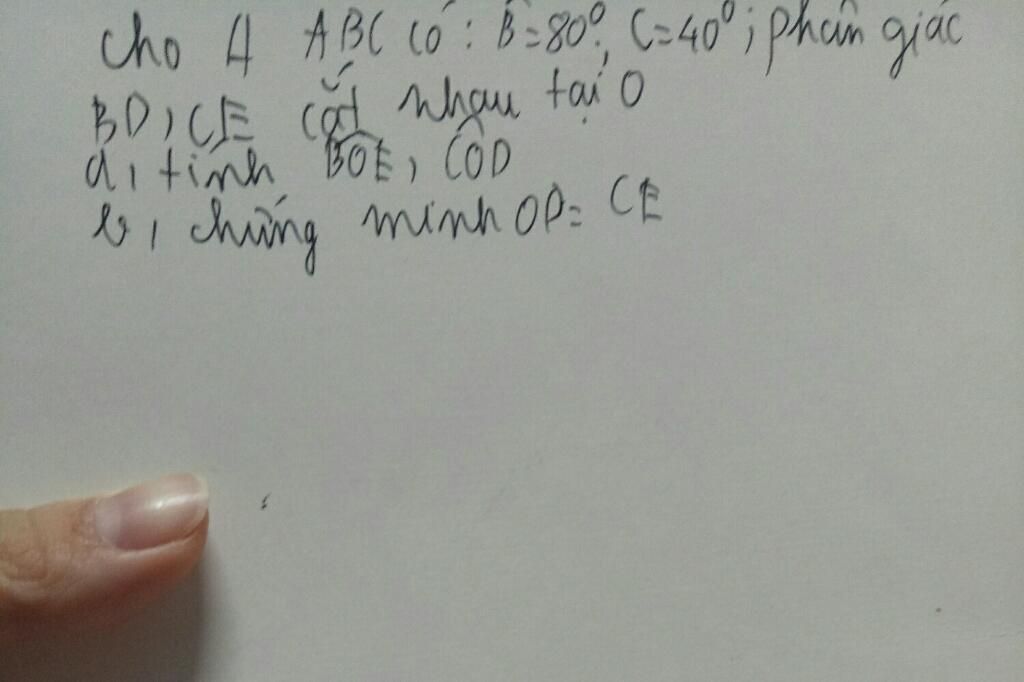 Cho Δ ABC có : B̂=80°, C=40° ; phân giác
BD, CE cắt nhau tại O
a, tính BÔE, CÔD
b, chứng minh OD= CE